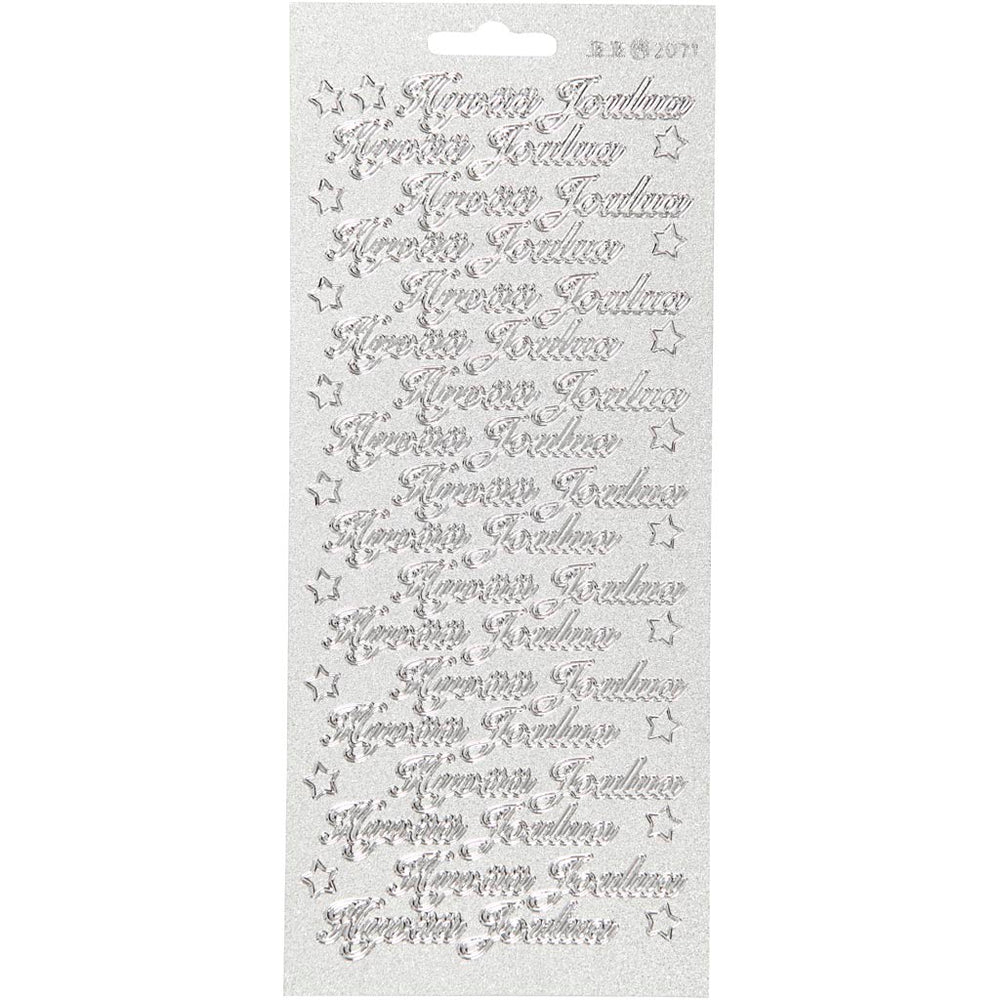 2071
Hyvää Joulua
Hyvää Joulua
Hyvää Joulua
Hyvää Joulua
Hyvää Joulua
Hyvää Joulua
Hyvää Joulua
Hyvää Joulua
Hyvää Joulua
Hyvää Joulua
Hyvää Joulua
Hyvää Joulua
Hyvää Joulua
Hyvää Joulua
Hyvää Joulua
Hyvää Joulua
Hyvää Joulua
Hyvää Joulua